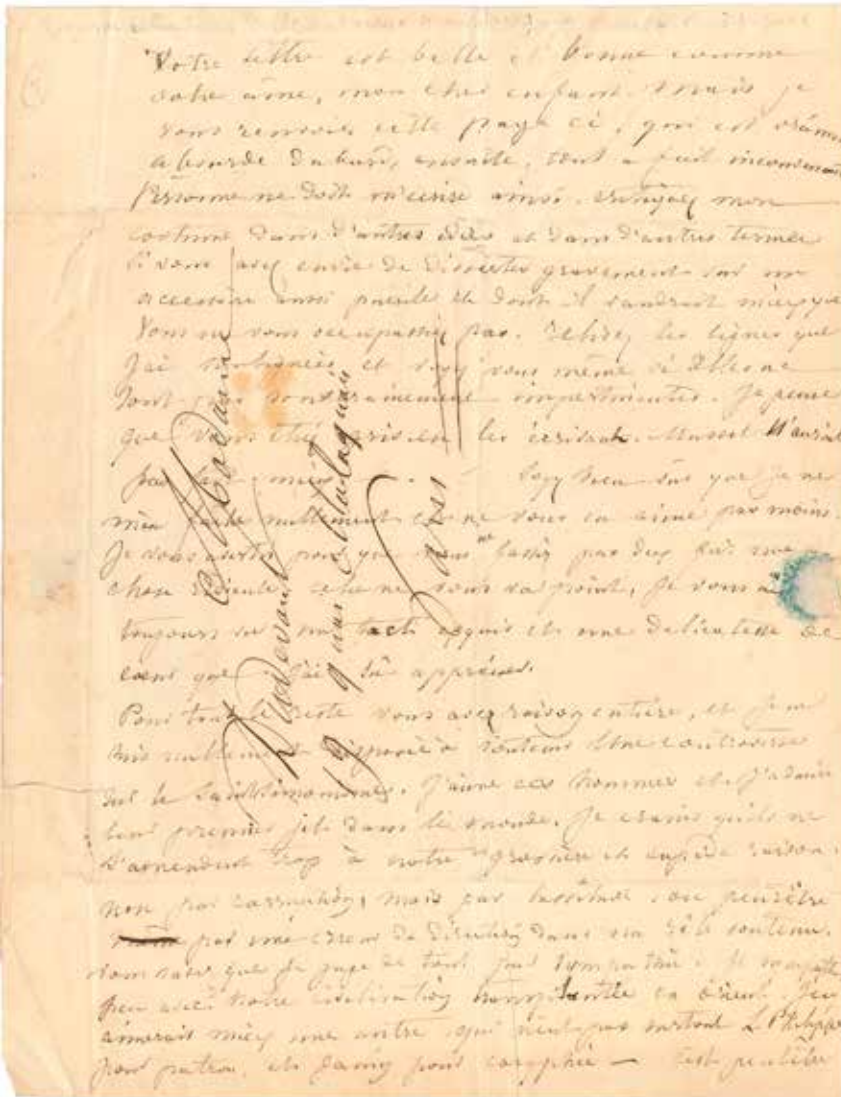 Votre lettre est belle et bonne comme
votre âme, mon cher enfant. Mais je
vous renvoie cette page ci, qui est
absurde d'abord, ensuite, tout a fait inconvenante
Personne ne doit m'écrire ainsi. mon
costume dans d'autres idées et dans d'autres termes
Si vous avez envie de disserter gravement sur un
accessoire aussi puerile et dont il vaudrait mieux que
vous ne vous occupassiez pas. Relisez les lignes que
j'ai soulignées et voyez vous même si elles ne
sont pas souverainement impertinentes. Je pense
que vous étiez gris en les écrivant. Musset n'aurait
pas mieux Soyez bien sûr que je ne
m'en fâche nullement et ne vous en aime pas moins.
Je vous avertis pour que vous ne fassiez pas deux fois une
chose ridicule cela ne vous va point, je vous ai
toujours vu un tact exquis et une delicatesse de
coeur que j'ai su apprécier.
Pour tout le reste vous avez raison entière, et je ne
suis nullement disposée à soutenir une controverse
sur le Saintsimonisme. J'aime ces hommes et j'admire
leur premier jet dans le monde. Je crains qu'ils ne
s'amendent trop à notre grossière et cupide raison.
non par corruption, mais par lassitude ou peutêtre
par une erreur de direction dans un zèle soutenu.
vous savez que je juge de tout par sympathie. Je
peu avec notre civilisation transplantée en orient. J'en
aimerais mieux une autre qui n'eut pas surtout L. Philippe
pour patron, et pour coryphée — C'est peutêtre
A Madame
Dudevant
19 quai Malaquais
Paris